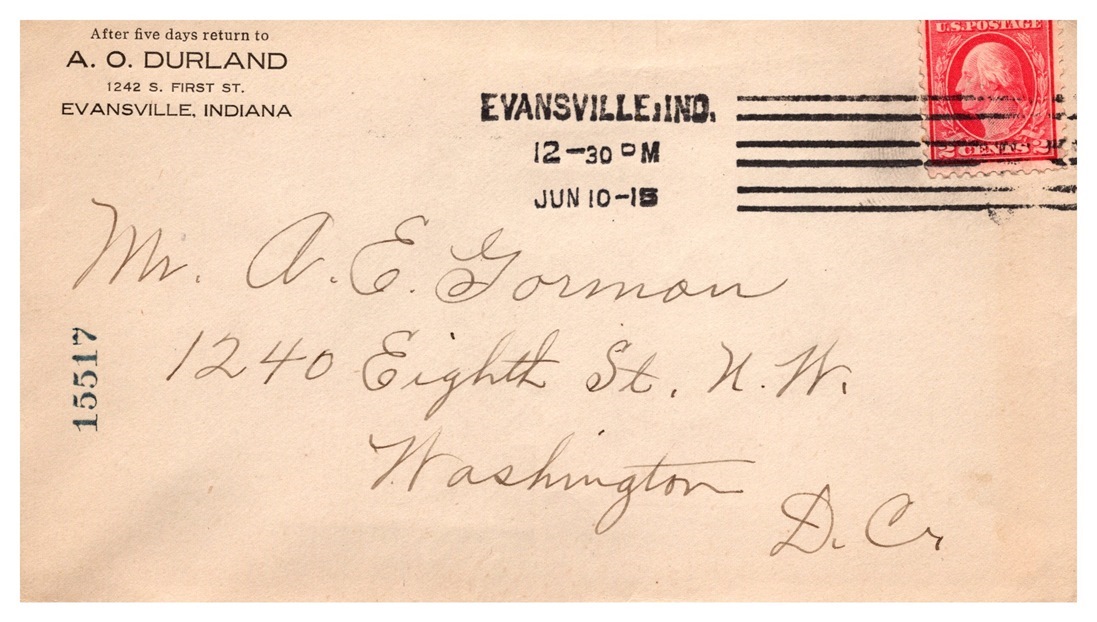 After five days return to
A. O. DURLAND
1242 S. FIRST ST.
EVANSVILLE, INDIANA
U.S. POSTAGE
2 CENTS 2
EVANSVILLE, IND.
12-30 PM
JUN 10-15
Mr. A. E. Gorman
1240 Eighth St. N. W.
Washington
D. C.
15517